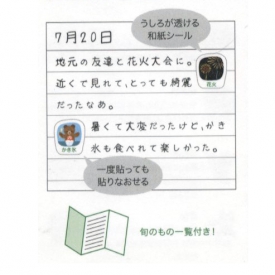 うしろが透ける
和紙シール
7月20日
地元の友達と花火大会に。
近くで見れて、とっても綺麗
だったなぁ。
花火
暑くて大変だったけど、かき
氷も食べれて楽しかった。
かき氷
一度貼っても
貼りなおせる
旬のもの一覧付き!